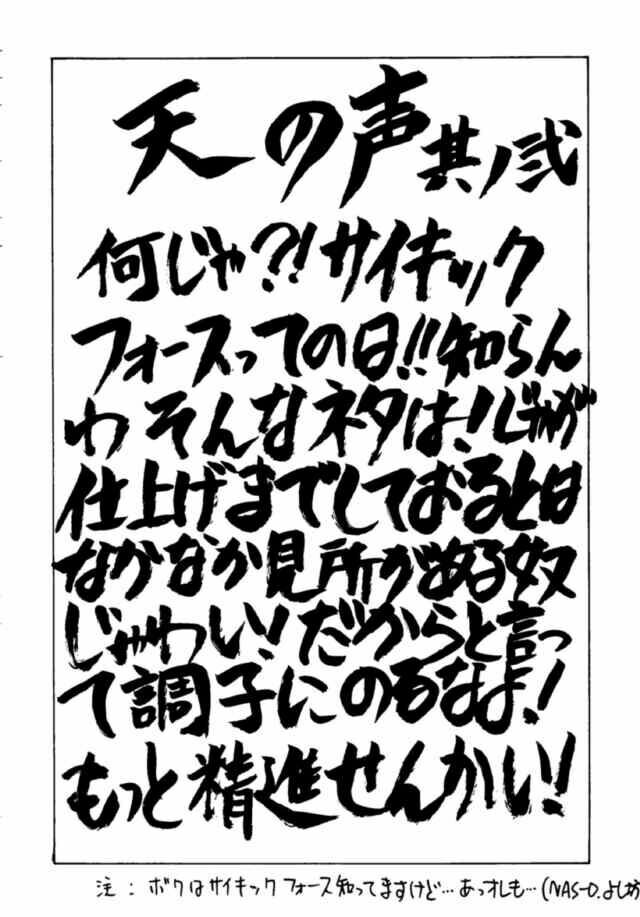 天の声 其ノ弐
何じゃ?!サイキック
フォースっての日!!知らん
わそんなネタは!じゃが
仕上げまでしておるとは
なかなか見所がある奴
じゃわい!だからと言っ
て調子にのるなよ!
もっと精進せんかい!
注：ボクはサイキックフォース知ってますけど…あっオレも…(NAS-O.よしか